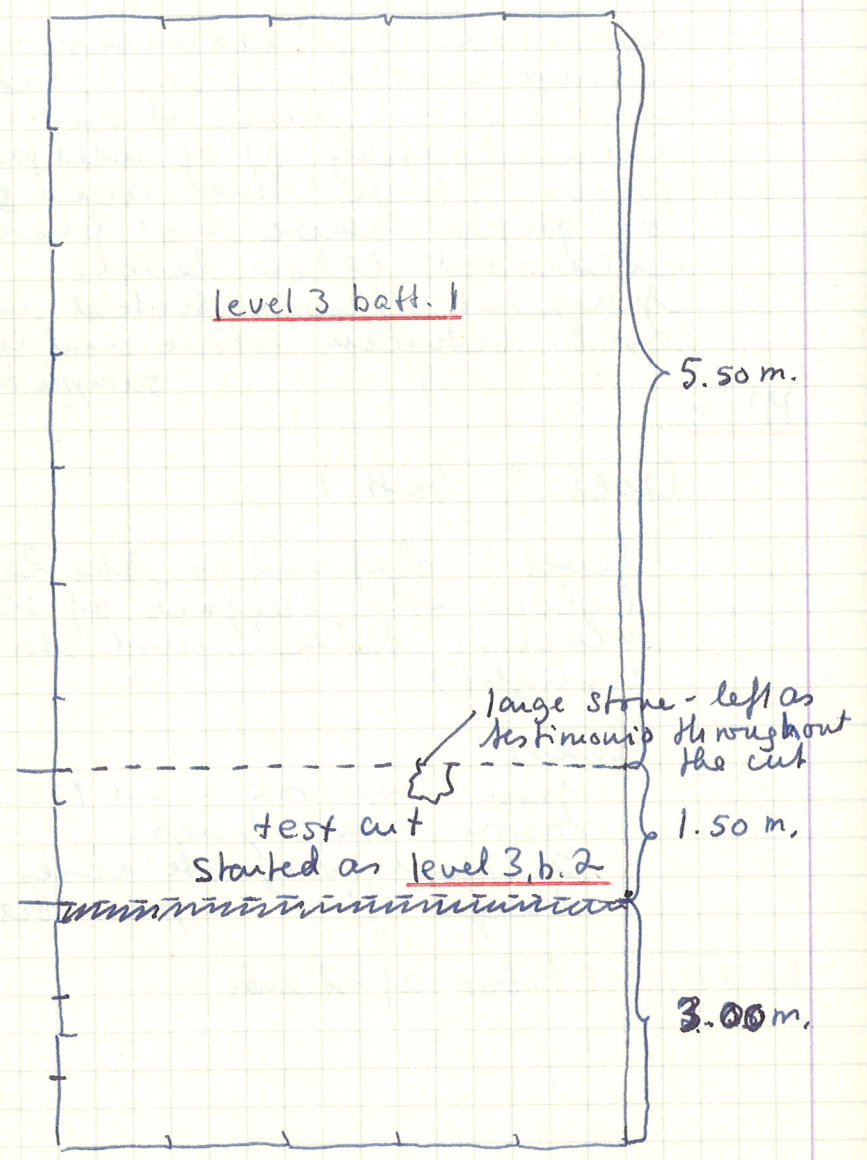 level 3 batt. 1
5.50 m.
large stone - left as
testimonio throughout
the cut
test cut
started as level 3, b. 2
1.50 m.
3.00 m.